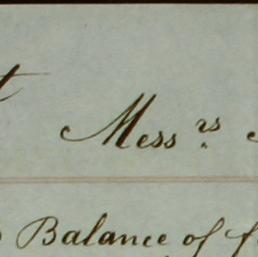 Mess.rs
Balance of